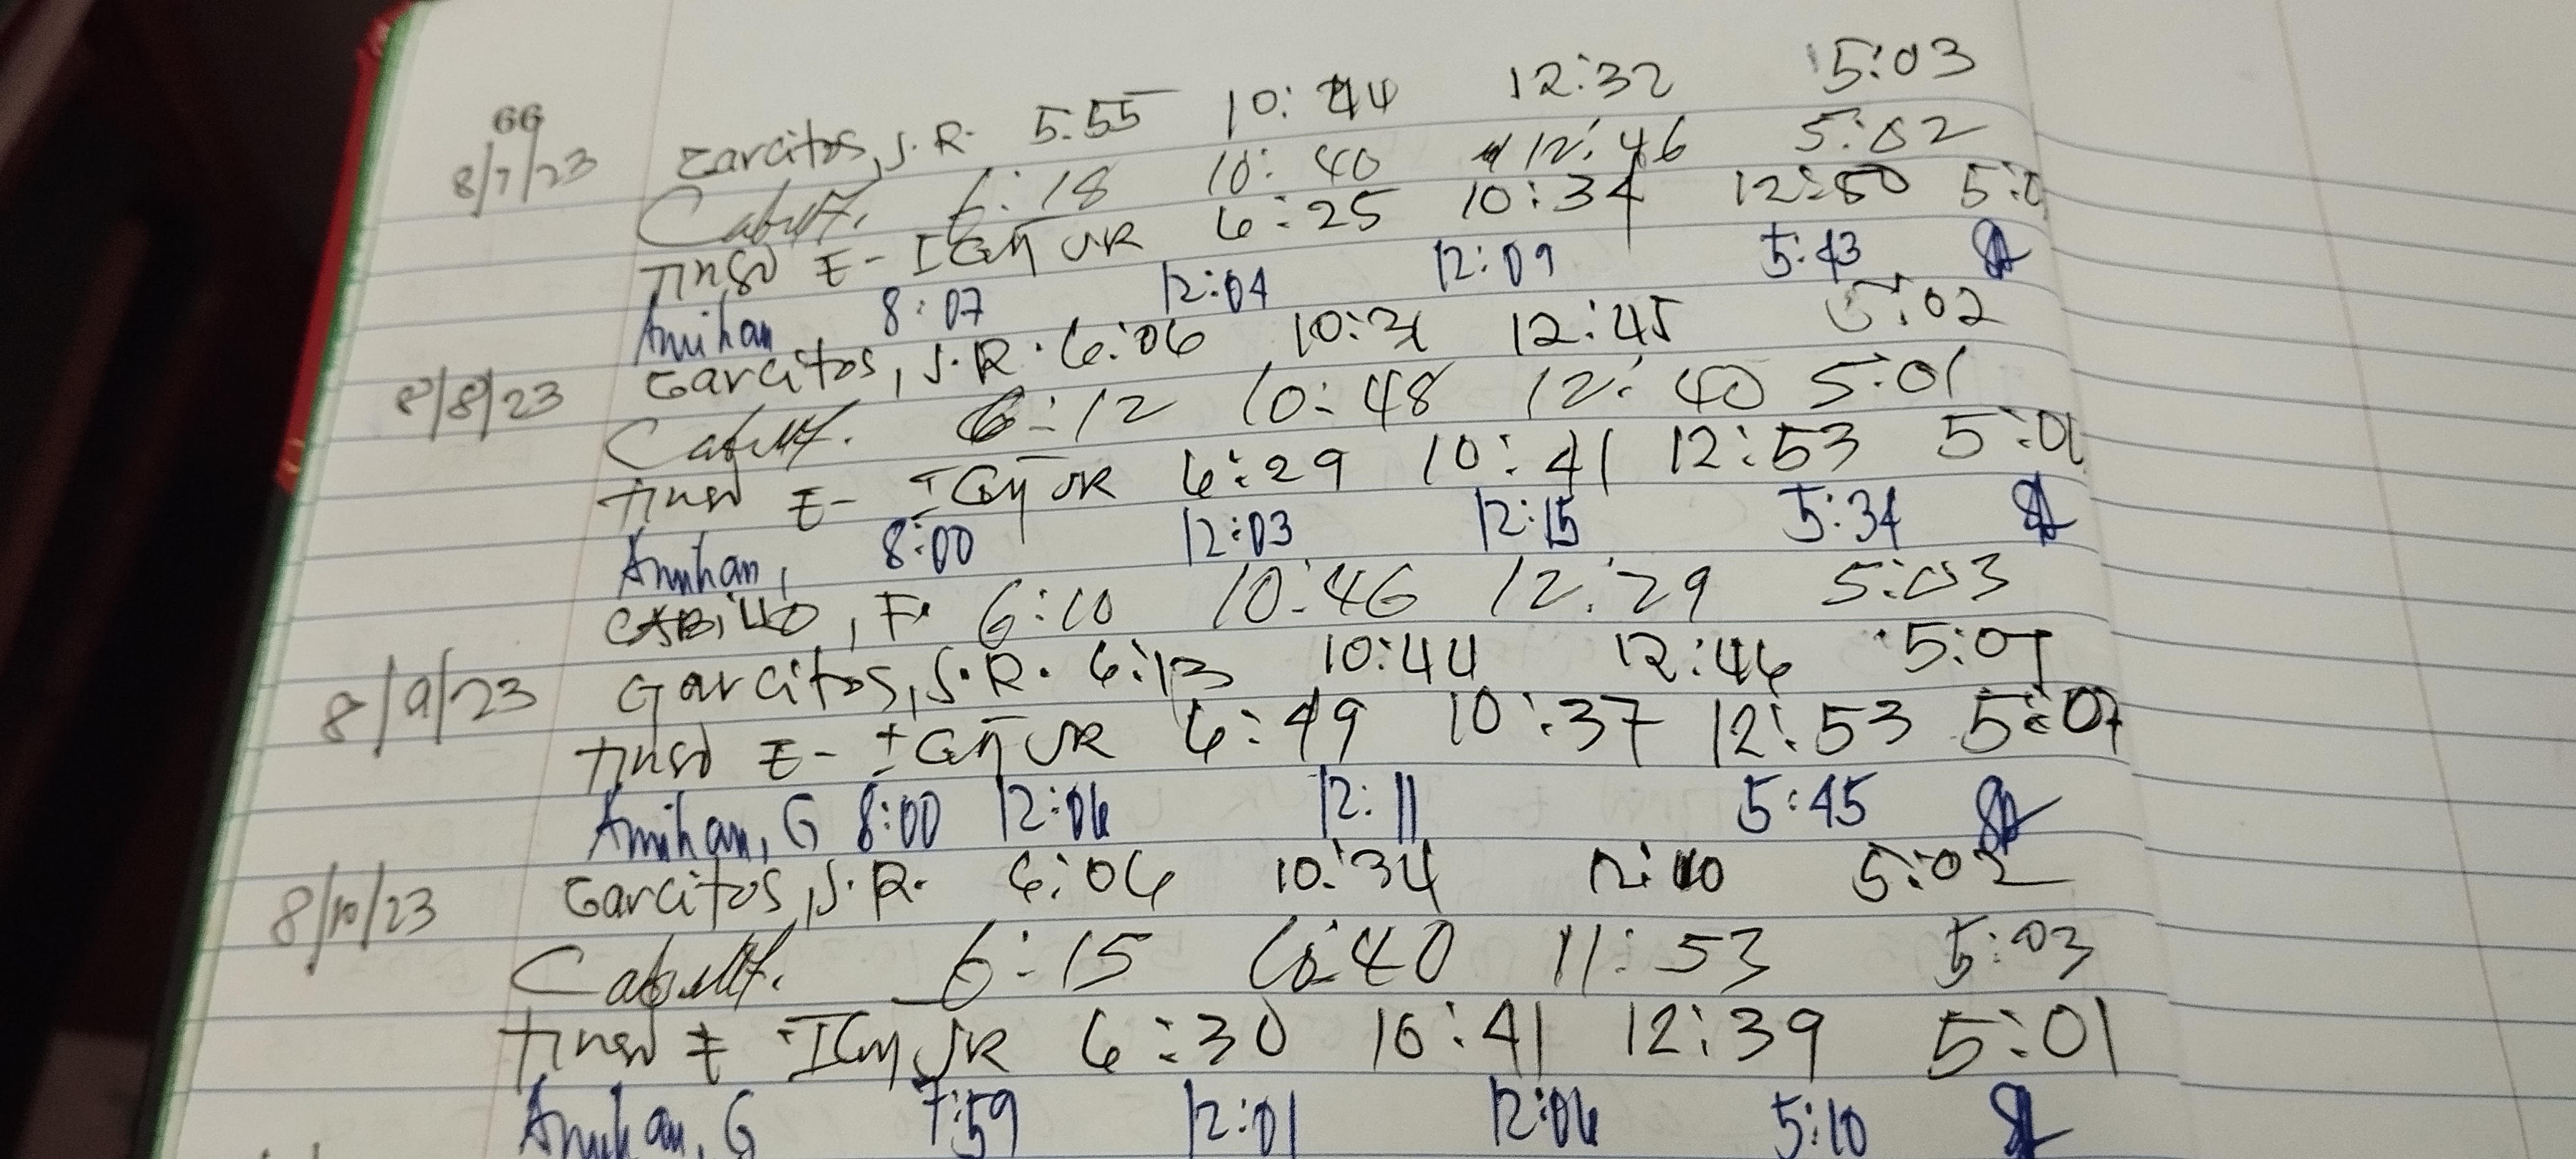 66
8/7/23 Garcitos, J.R. 5:55 10:44 12:32 5:03
6:18 10:40 12:46 5:02
E- JR 6:25 10:34 12:50 5:0
Amihan 8:07 12:04 12:09 5:43
8/8/23 Garcitos, J.R. 6:06 10:31 12:45 5:02
6:12 10:48 12:40 5:01
E- JR 6:29 10:41 12:53 5:01
Amihan, 8:00 12:03 12:15 5:34
CABillO, F. 6:10 10:46 12:29 5:03
8/9/23 Garcitos, J.R. 6:13 10:44 12:46 5:07
E- JR 6:49 10:37 12:53 5:07
Amihan, G 8:00 12:06 12:11 5:45
8/10/23 Garcitos, J.R. 6:06 10:34 12:40 5:02
6:15 10:40 11:53 5:03
E JR 6:30 10:41 12:39 5:01
Amihan, G 7:59 12:01 12:06 5:10